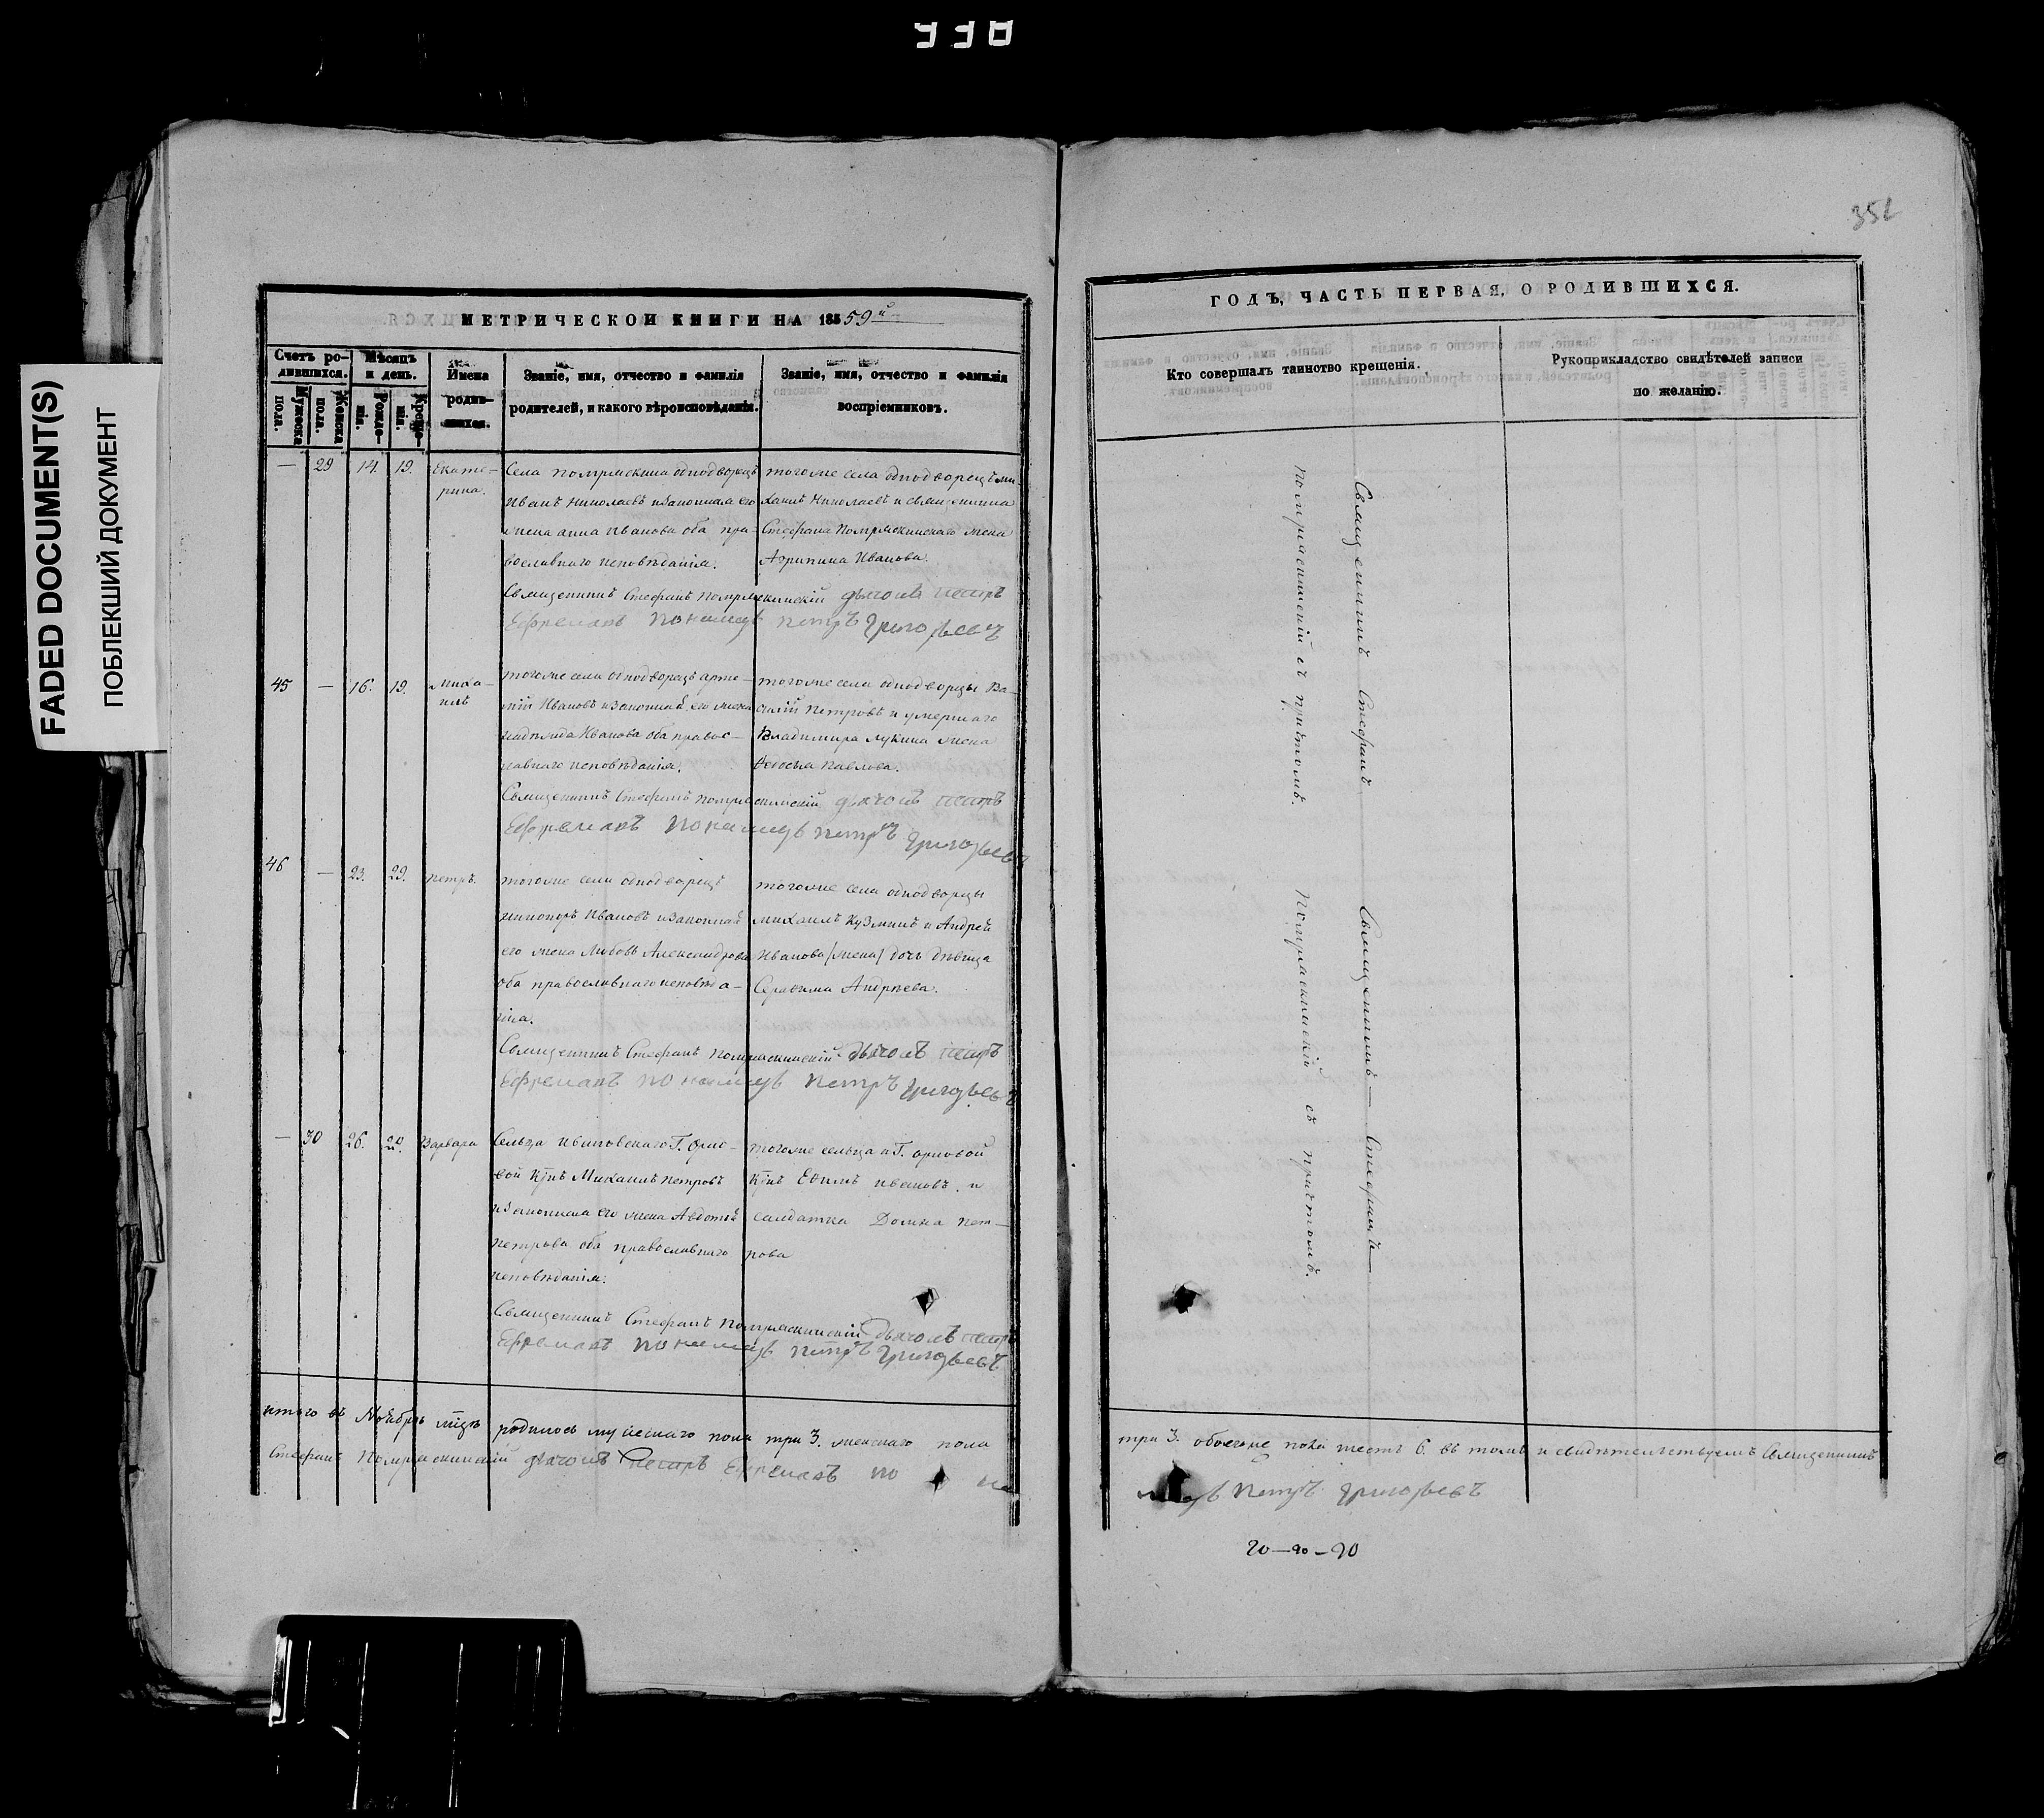 338
FADED DOCUMENT(S)
ПОБЛЕКШИЙ ДОКУМЕНТ
МЕТРИЧЕСКОЙ КНИГИ НА 18559й
Счетъ ро-
дившихся.
Мужеска
пола.
Женска
пола.
Мѣсяцъ
и день.
Рожде-
нія.
Креще-
нія.
Имена
родив-
шихся.
Званіе, имя, отчество и фамилія
родителей, и какого вѣроисповѣданія.
Званіе, имя, отчество и фамилія
воспріемниковъ.
— 29 14. 19. Екате-
рина.
Села однодворецъ
Иванъ Николаевъ и законная его
жена Анна Иванова оба пра-
вославнаго исповѣданія.
тогоже села однодворецъ Ми-
хаилъ Николаевъ и священника
Стефана жена
Агрипина Иванова.
Священникъ Стефанъ дьячокъ Петръ
Ефремовъ пономарь Петръ Григорьевъ
45 — 16. 19. Миха-
илъ
тогоже села однодворецъ Арте-
мій Ивановъ и законная его жена
Надежда Иванова оба правос-
лавнаго исповѣданія.
тогоже села однодворцы Ва-
силій Петровъ и умершаго
Владимира Лукина жена
Ѳедосья Павлова.
Священникъ Стефанъ дьячокъ Петръ
Ефремовъ пономарь Петръ Григорьевъ
46 — 23. 29. Петръ.
тогоже села однодворецъ
Никаноръ Ивановъ и законная
его жена Любовь Александрова
оба православнаго исповѣда-
нія.
тогоже села однодворцы
Михаилъ Кузминъ и Андрея
Иванова (жена) дочь дѣвица
Серафима Андреева.
Священникъ Стефанъ дьячокъ Петръ
Ефремовъ пономарь Петръ Григорьевъ
— 30 26. 29. Варвара
Сельца Г. Орло-
вой Михаилъ Петровъ
и законная его жена Авдотья
Петрова оба православнаго
исповѣданія.
тогоже сельца и Г. Орловой
Ефимъ Ивановъ и
солдатка Домна Пет-
рова
Священникъ Стефанъ дьячокъ Петръ
Ефремовъ пономарь Петръ Григорьевъ
итого въ Ноябрѣ родилось мужескаго пола три 3. женскаго пола
Стефанъ дьячокъ Петръ Ефремовъ по
351
ГОДЪ, ЧАСТЬ ПЕРВАЯ, О РОДИВШИХСЯ.
Кто совершалъ таинство крещенія.
Рукоприкладство свидѣтелей записи
по желанію.
Священникъ Стефанъ
съ причтомъ.
Священникъ — Стефанъ —
съ причтомъ.
три 3. обоего пола шесть 6. въ томъ и свидѣтельствуемъ Священникъ
Петръ Григорьевъ
20—20—20